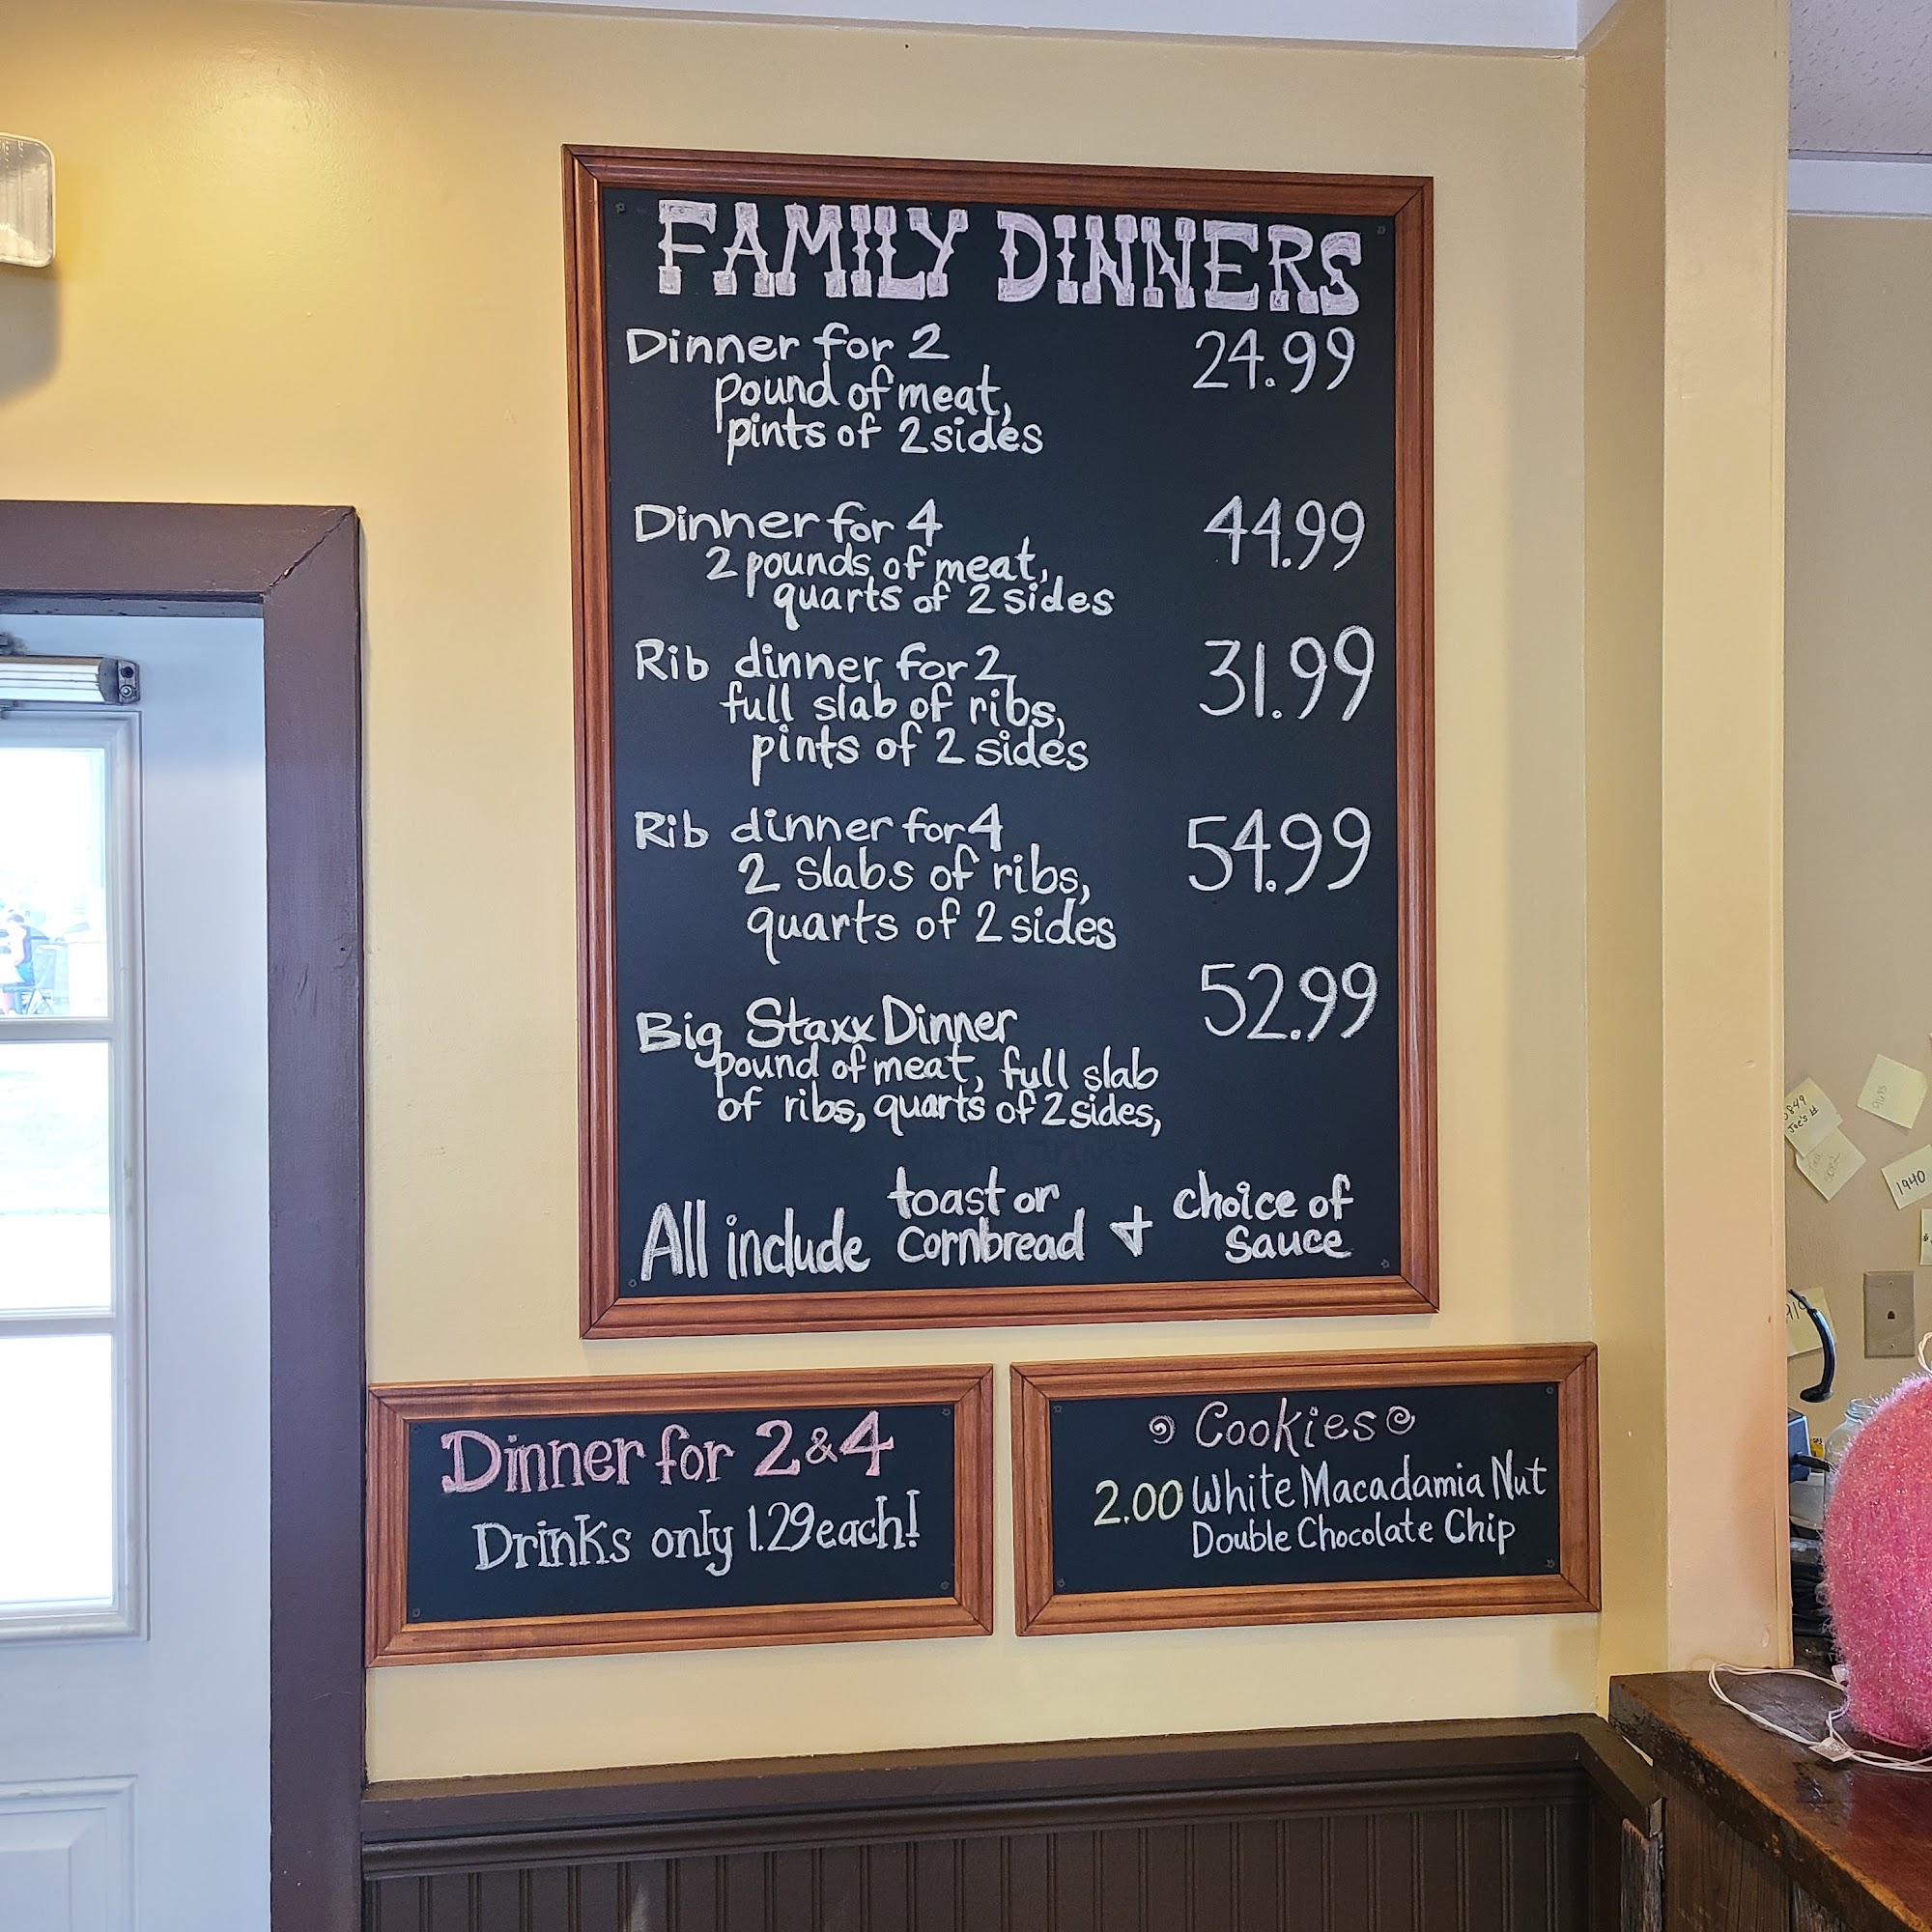 FAMILY DINNERS
Dinner for 2 24.99
pound of meat,
pints of 2 sides
Dinner for 4 44.99
2 pounds of meat,
quarts of 2 sides
Rib dinner for 2, 31.99
full slab of ribs,
pints of 2 sides
Rib dinner for 4 54.99
2 slabs of ribs,
quarts of 2 sides
52.99
Big Staxx Dinner
pound of meat, full slab
of ribs, quarts of 2 sides,
All include toast or Cornbread + choice of Sauce
Dinner for 2 & 4
Drinks only 1.29 each!
Cookies
2.00 White Macadamia Nut
Double Chocolate Chip
Joe's
1940